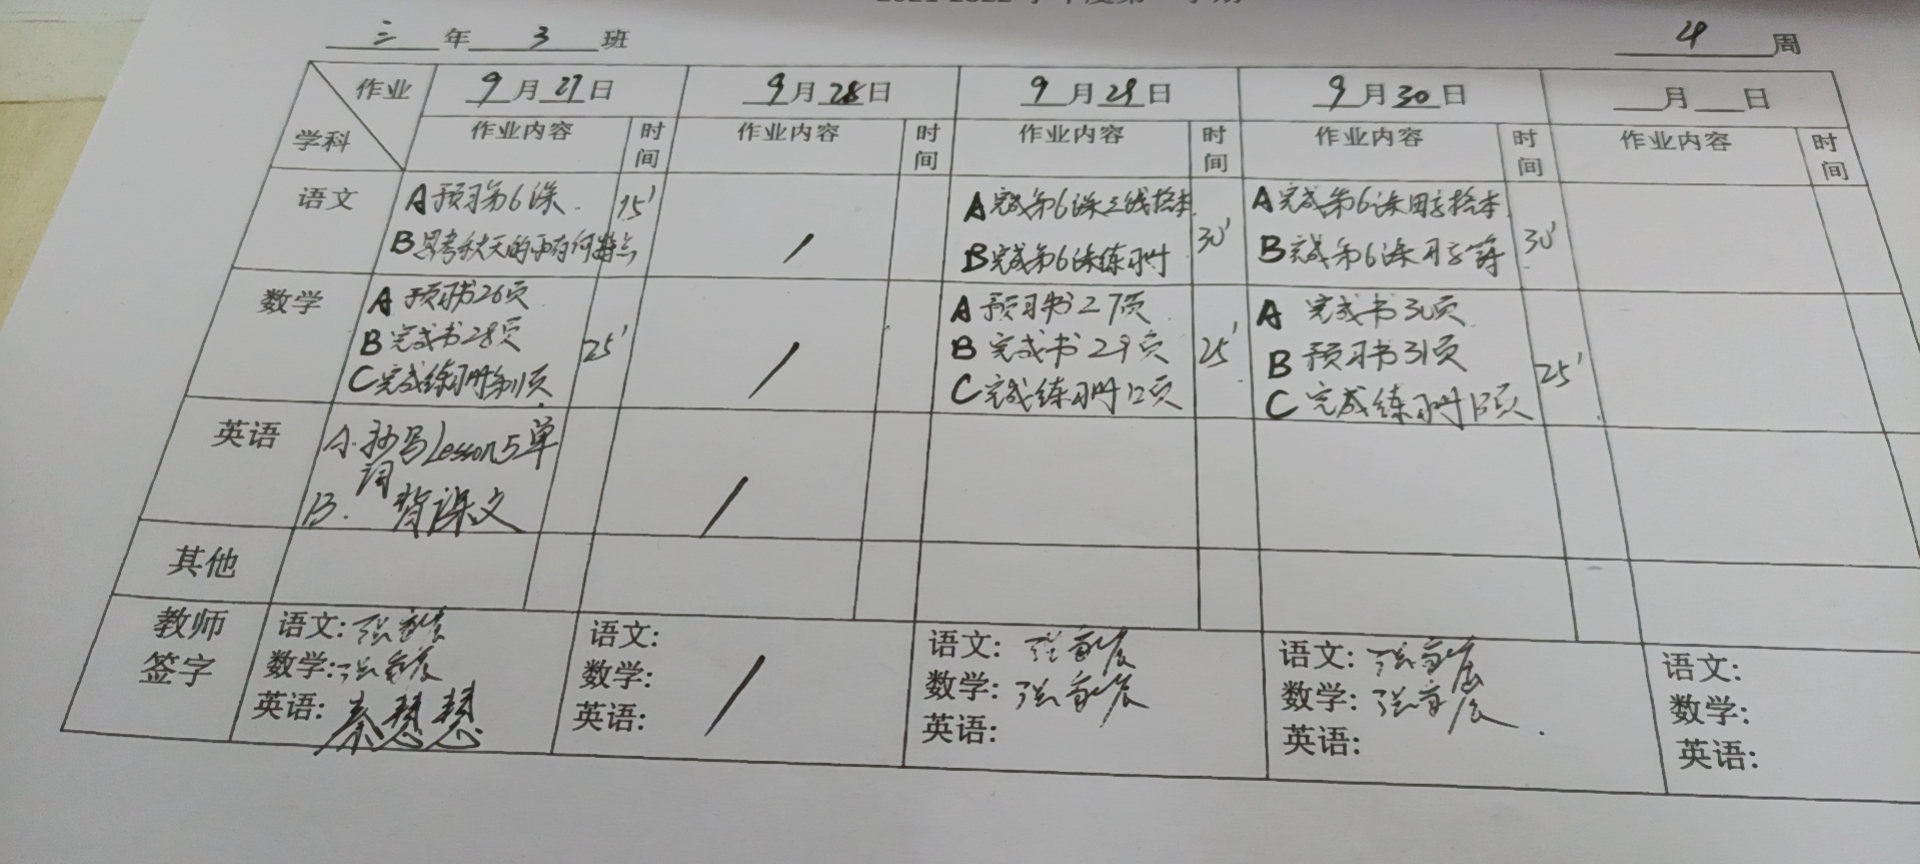 三 年 3 班 4 周
作业 9月27日 9月28日 9月29日 9月30日 月 日
学科 作业内容 时间 作业内容 时间 作业内容 时间 作业内容 时间 作业内容 时间
语文 A 预习第6课. 15' A 完成第6课 A 完成第6课
B 思考秋天的雨有何特点 / B 完成第6课练习册 30' B 完成第6课习字 30'
数学 A 预习书26页 A 预习书27页 A 完成书30页
B 完成书28页 25' / B 完成书29页 25' B 预习书31页 25'
C 完成练习册第11页. C 完成练习册12页 C 完成练习册13页
英语 A. 抄写Lesson5单词
B. 背课文 /
其他
教师签字 语文: 张 语文: 语文: 张 语文: 张 语文:
数学: 张 数学: 数学: 张 数学: 张 数学:
英语: 秦慧慧 英语: / 英语: 英语: 英语: